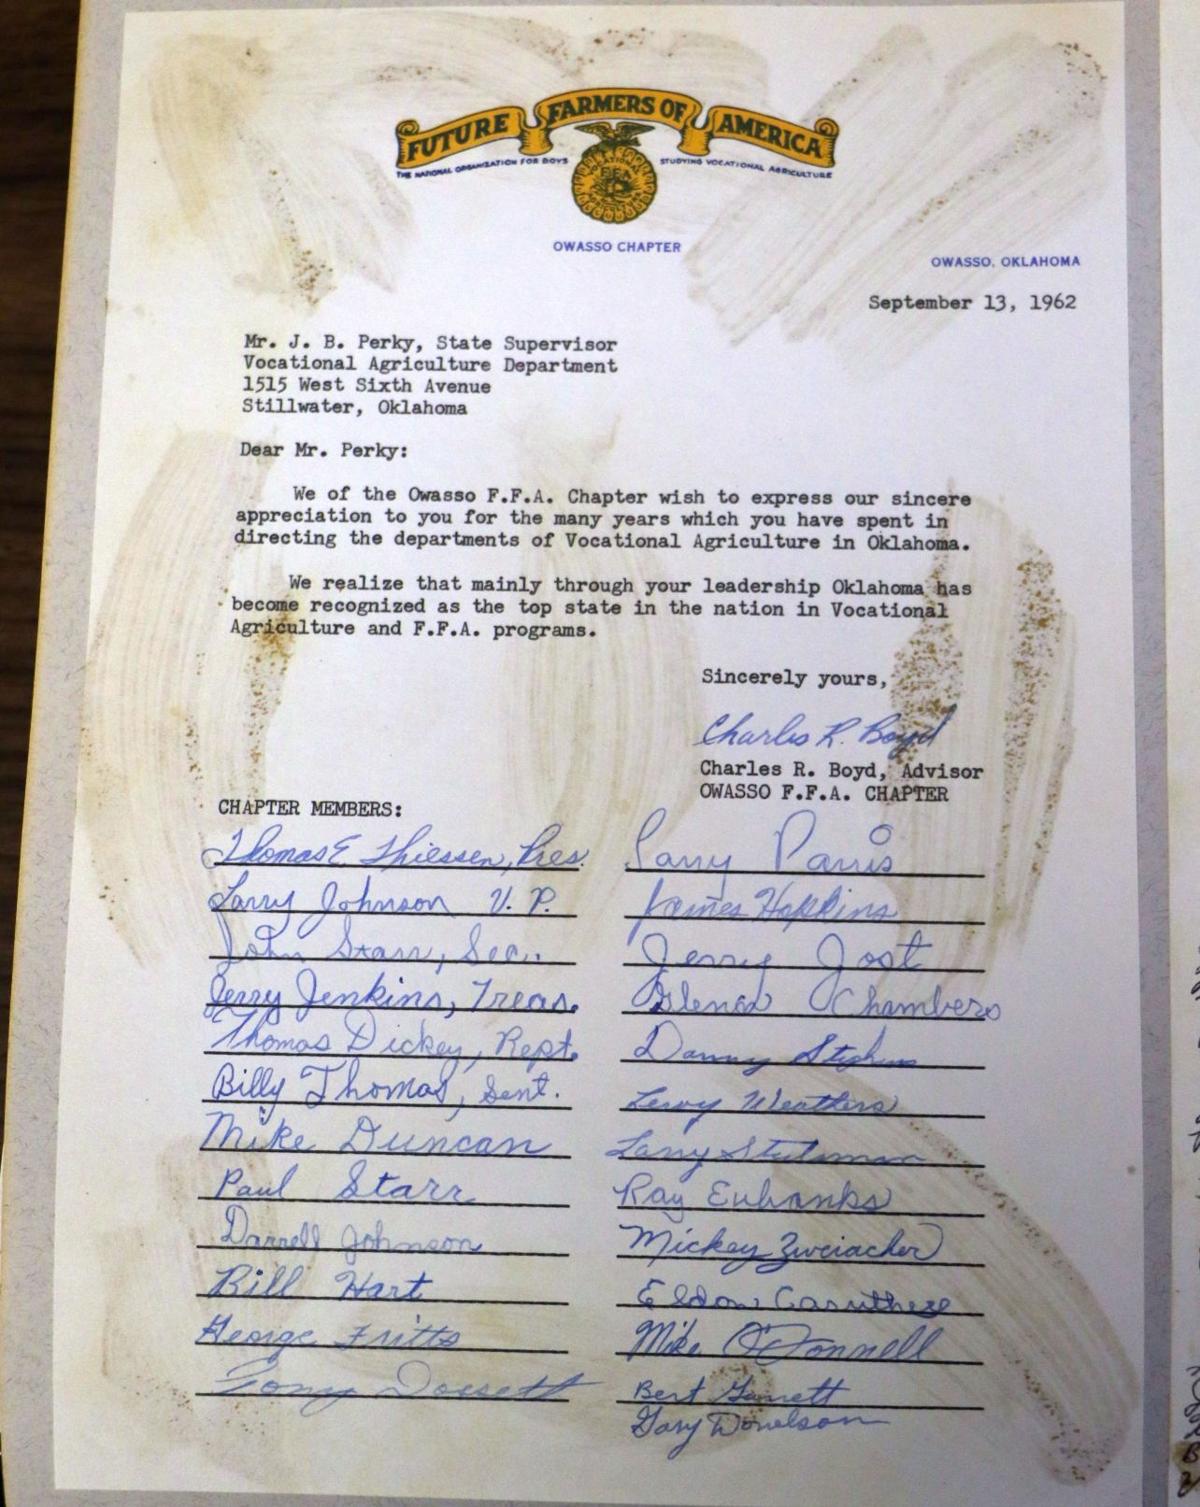 FUTURE FARMERS OF AMERICA
THE NATIONAL ORGANIZATION FOR BOYS STUDYING VOCATIONAL AGRICULTURE
OWASSO CHAPTER
OWASSO, OKLAHOMA
September 13, 1962
Mr. J. B. Perky, State Supervisor
Vocational Agriculture Department
1515 West Sixth Avenue
Stillwater, Oklahoma
Dear Mr. Perky:
We of the Owasso F.F.A. Chapter wish to express our sincere
appreciation to you for the many years which you have spent in
directing the departments of Vocational Agriculture in Oklahoma.
We realize that mainly through your leadership Oklahoma has
become recognized as the top state in the nation in Vocational
Agriculture and F.F.A. programs.
Sincerely yours,
Charles R. Boyd
Charles R. Boyd, Advisor
OWASSO F.F.A. CHAPTER
CHAPTER MEMBERS:
Thomas E Thiessen, Pres.
Larry Johnson V. P.
John Starr, Sec.
Jerry Jenkins, Treas.
Thomas Dickey, Rept.
Billy Thomas, Sent.
Mike Duncan
Paul Starr
Darrell Johnson
Bill Hart
George Fritts
Tony Dossett
Larry Parris
James Hopkins
Jerry Jost
Chambers
Danny Stephens
Leroy Weathers
Larry Stutsman
Ray Eubanks
Mickey Zweiacher
Eldon Caruthers
Mike O'Donnell
Bert Garrett
Gary Donelson